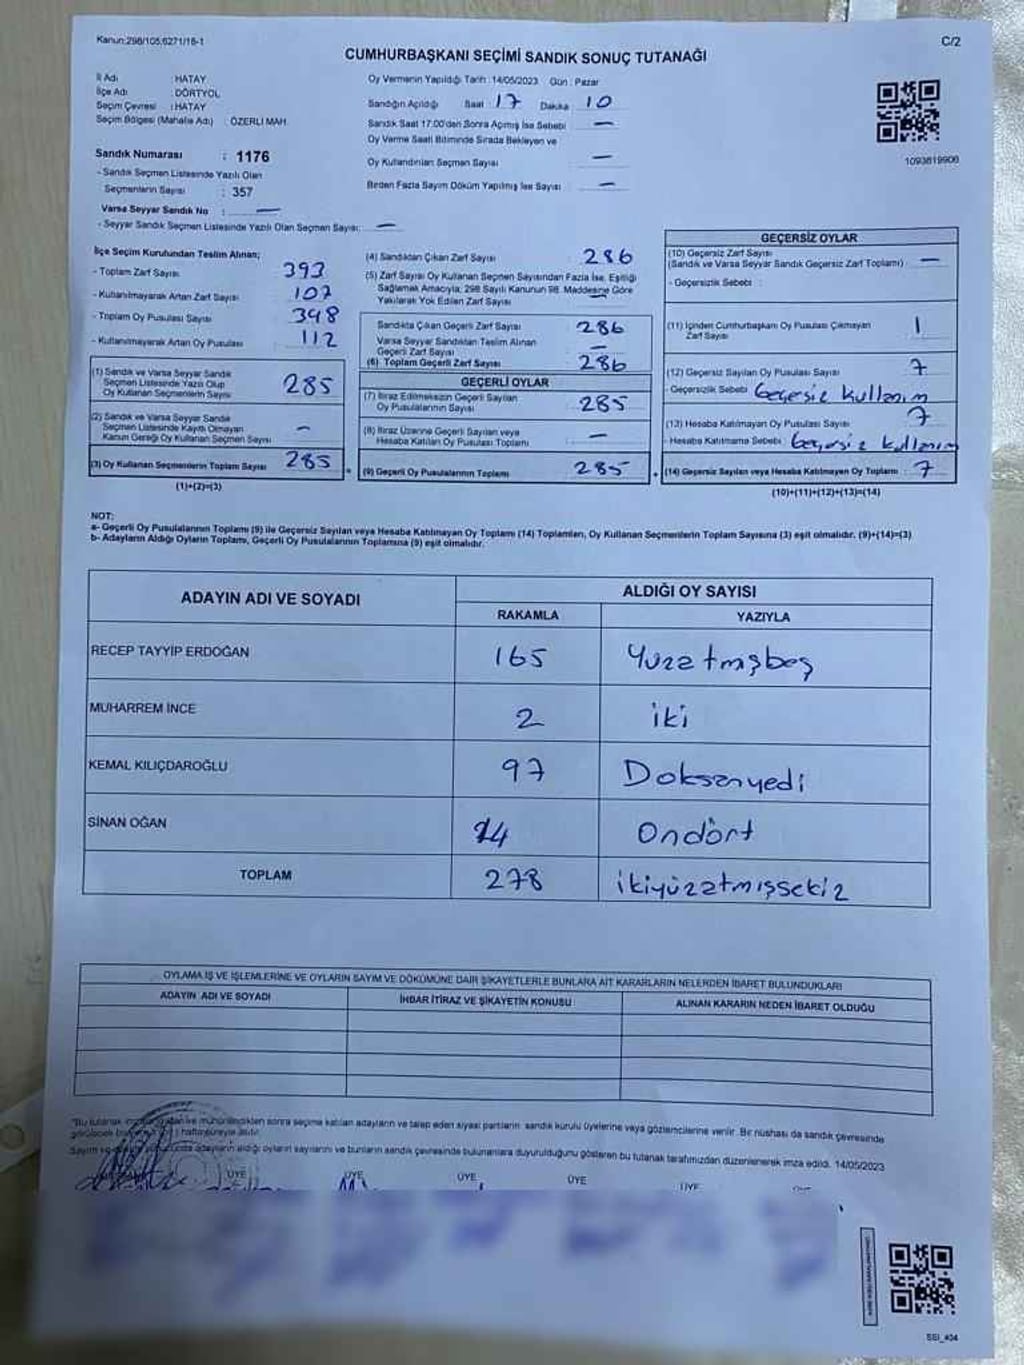 Kanun:298/105,6271/16-1
C/2
CUMHURBAŞKANI SEÇİMİ SANDIK SONUÇ TUTANAĞI
İl Adı : HATAY
İlçe Adı : DÖRTYOL
Seçim Çevresi : HATAY
Seçim Bölgesi (Mahalle Adı) : ÖZERLİ MAH.
Sandık Numarası : 1176
- Sandık Seçmen Listesinde Yazılı Olan
Seçmenlerin Sayısı : 357
Varsa Seyyar Sandık No : —
- Seyyar Sandık Seçmen Listesinde Yazılı Olan Seçmen Sayısı: —
Oy Vermenin Yapıldığı Tarih : 14/05/2023 Gün : Pazar
Sandığın Açıldığı Saat 17 Dakika 10
Sandık Saat 17:00'den Sonra Açılmış İse Sebebi —
Oy Verme Saati Bitiminde Sırada Bekleyen ve
Oy Kullandırılan Seçmen Sayısı —
Birden Fazla Sayım Döküm Yapılmış İse Sayısı —
1093819906
İlçe Seçim Kurulundan Teslim Alınan;
- Toplam Zarf Sayısı 393
- Kullanılmayarak Artan Zarf Sayısı 107
- Toplam Oy Pusulası Sayısı 398
- Kullanılmayarak Artan Oy Pusulası 112
(1) Sandık ve Varsa Seyyar Sandık
Seçmen Listesinde Yazılı Olup
Oy Kullanan Seçmenlerin Sayısı 285
(2) Sandık ve Varsa Seyyar Sandık
Seçmen Listesinde Kayıtlı Olmayan
Kanun Gereği Oy Kullanan Seçmen Sayısı —
(3) Oy Kullanan Seçmenlerin Toplam Sayısı 285
(1)+(2)=(3)
(4) Sandıktan Çıkan Zarf Sayısı 286
(5) Zarf Sayısı Oy Kullanan Seçmen Sayısından Fazla İse, Eşitliği
Sağlamak Amacıyla; 298 Sayılı Kanunun 98. Maddesine Göre
Yakılarak Yok Edilen Zarf Sayısı —
Sandıkta Çıkan Geçerli Zarf Sayısı 286
Varsa Seyyar Sandıktan Teslim Alınan
Geçerli Zarf Sayısı —
(6) Toplam Geçerli Zarf Sayısı 286
GEÇERLİ OYLAR
(7) İtiraz Edilmeksizin Geçerli Sayılan
Oy Pusulalarının Sayısı 285
(8) İtiraz Üzerine Geçerli Sayılan veya
Hesaba Katılan Oy Pusulası Toplamı —
(9) Geçerli Oy Pusulalarının Toplamı 285
GEÇERSİZ OYLAR
(10) Geçersiz Zarf Sayısı
(Sandık ve Varsa Seyyar Sandık Geçersiz Zarf Toplamı) : —
- Geçersizlik Sebebi :
(11) İçinden Cumhurbaşkanı Oy Pusulası Çıkmayan
Zarf Sayısı 1
(12) Geçersiz Sayılan Oy Pusulası Sayısı 7
- Geçersizlik Sebebi Geçesiz kullanım
(13) Hesaba Katılmayan Oy Pusulası Sayısı 7
- Hesaba Katılmama Sebebi Geçersiz kullanım
(14) Geçersiz Sayılan veya Hesaba Katılmayan Oy Toplamı : 7
(10)+(11)+(12)+(13)=(14)
NOT:
a- Geçerli Oy Pusulalarının Toplamı (9) ile Geçersiz Sayılan veya Hesaba Katılmayan Oy Toplamı (14) Toplamları, Oy Kullanan Seçmenlerin Toplam Sayısına (3) eşit olmalıdır. (9)+(14)=(3)
b- Adayların Aldığı Oyların Toplamı, Geçerli Oy Pusulalarının Toplamına (9) eşit olmalıdır.
ADAYIN ADI VE SOYADI
ALDIĞI OY SAYISI
RAKAMLA YAZIYLA
RECEP TAYYİP ERDOĞAN 165 Yüzatmışbeş
MUHARREM İNCE 2 iki
KEMAL KILIÇDAROĞLU 97 Doksanyedi
SİNAN OĞAN 14 Ondört
TOPLAM 278 ikiyüzatmışsekiz
OYLAMA İŞ VE İŞLEMLERİNE VE OYLARIN SAYIM VE DÖKÜMÜNE DAİR ŞİKAYETLERLE BUNLARA AİT KARARLARIN NELERDEN İBARET BULUNDUKLARI
ADAYIN ADI VE SOYADI İHBAR İTİRAZ VE ŞİKAYETİN KONUSU ALINAN KARARIN NEDEN İBARET OLDUĞU
"Bu tutanak ve mühürlendikten sonra seçime katılan adayların ve talep eden siyasi partilerin sandık kurulu üyelerine veya gözlemcilerine verilir. Bir nüshası da sandık çevresinde
görülecek hafta süreyle asılır.
Sayım adayların aldığı oyların sayılarını ve bunların sandık çevresinde bulunanlara duyurulduğunu gösteren bu tutanak tarafımızdan düzenlenerek imza edildi. 14/05/2023
ÜYE ÜYE ÜYE ÜYE ÜYE
SSI_404